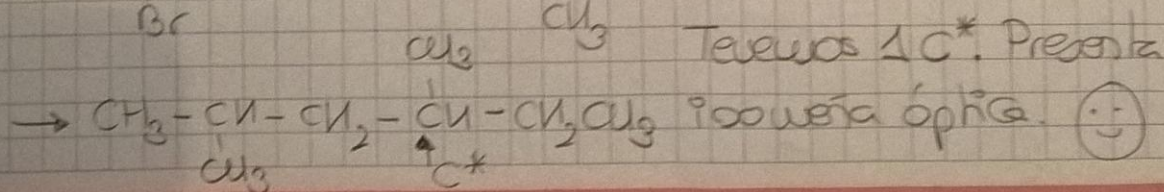 Br
CH3
CH3 Tenemos 1 C*. Presenta
→ CH3 - CH - CH2 - CH - CH2CH3 isomería óptica.
CH3 C*